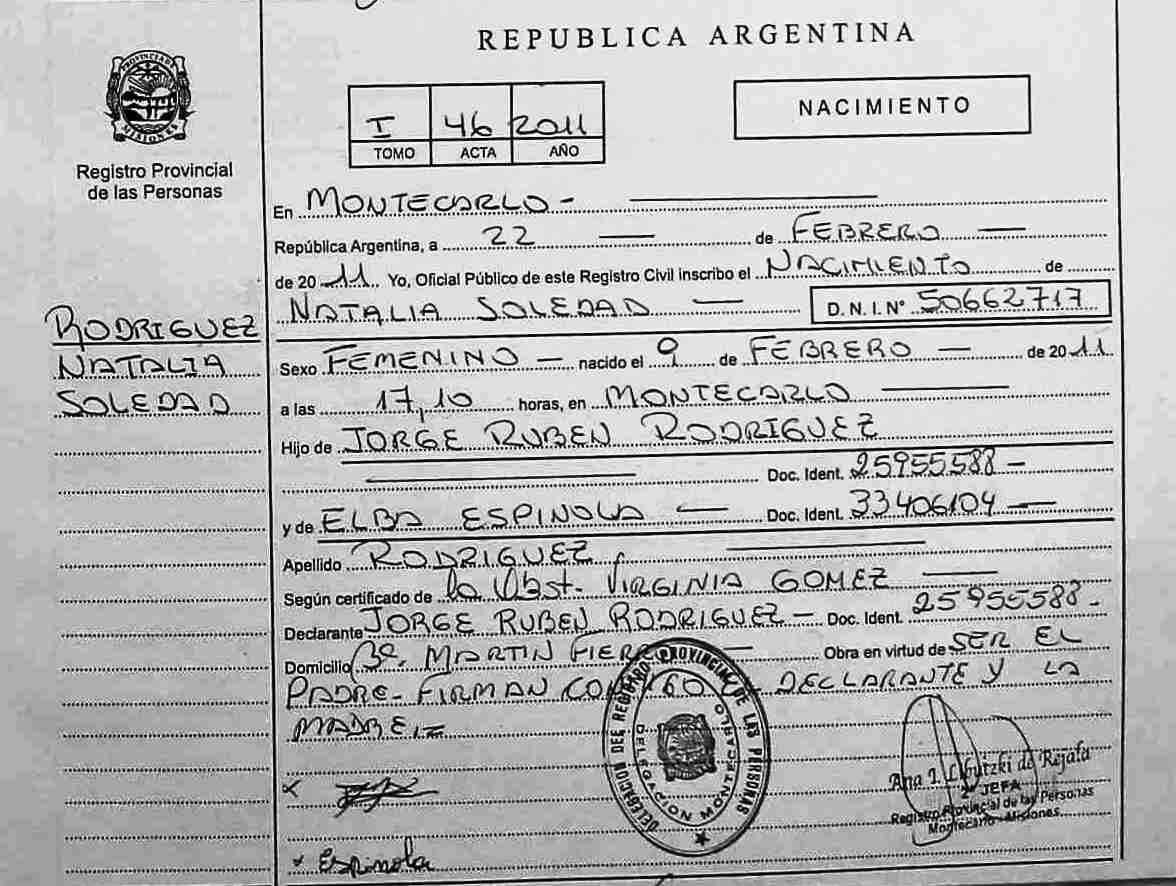 REPUBLICA ARGENTINA
PROVINCIA DE MISIONES
Registro Provincial
de las Personas
I 46 2011
TOMO ACTA AÑO
NACIMIENTO
En MONTECARLO -
República Argentina, a 22 — de FEBRERO —
de 2011 Yo, Oficial Público de este Registro Civil inscribo el NACIMIENTO de
NATALIA SOLEDAD — D.N.I. Nº 50662717
RODRIGUEZ
NATALIA
SOLEDAD
Sexo FEMENINO — nacido el 9 de FEBRERO — de 2011
a las 17,10 horas, en MONTECARLO
Hijo de JORGE RUBEN RODRIGUEZ
Doc. Ident. 25955588 —
y de ELBA ESPINOLA — Doc. Ident. 33406104 —
Apellido RODRIGUEZ
Según certificado de la Obst. VIRGINIA GOMEZ —
Declarante JORGE RUBEN RODRIGUEZ — Doc. Ident. 25955588 -
Domicilio Bº. MARTIN FIERRO — Obra en virtud de SER EL
PADRE - FIRMAN CONMIGO EL DECLARANTE Y LA
MADRE
DELEGACION DEL REGISTRO PROVINCIAL DE LAS PERSONAS
DELEGACION MONTECARLO
Ana I. de Rejala
JEFA
Registro Provincial de las Personas
Montecarlo - Misiones
x
x Espinola